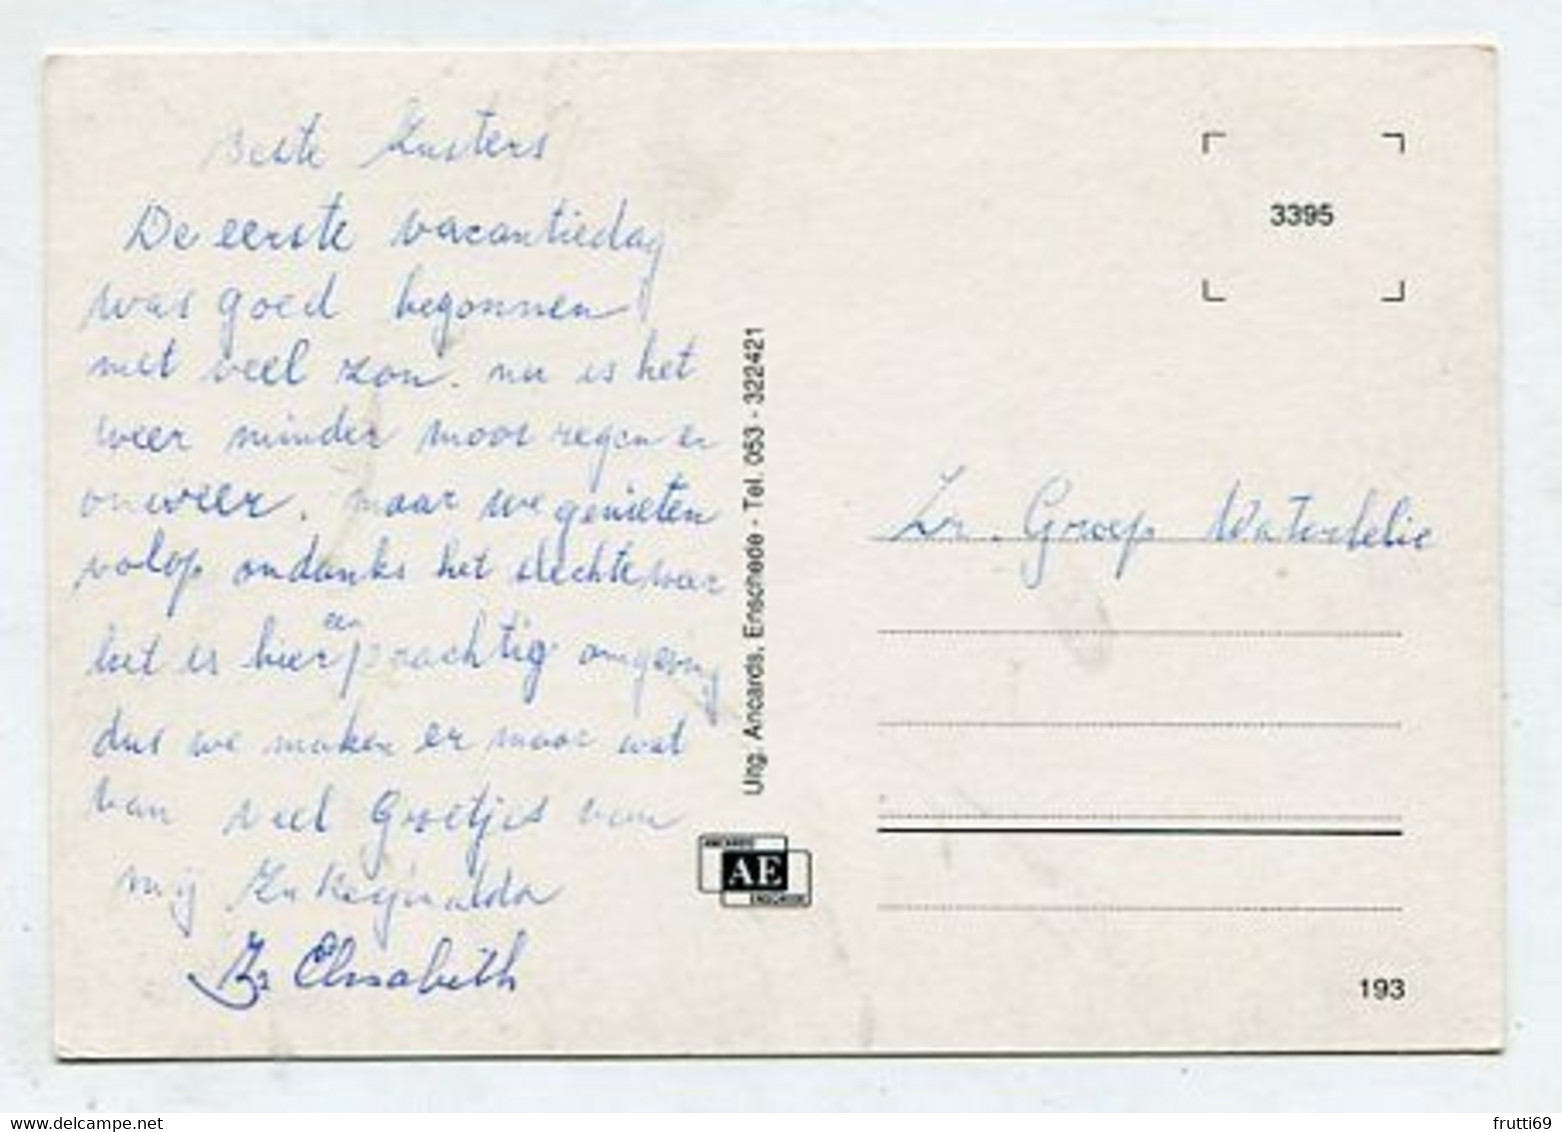 Beste Zusters
De eerste vacantiedag
was goed begonnen
met veel zon. nu is het
weer minder mooi regen en
onweer. maar we genieten
volop ondanks het slechte weer
het is hier een prachtig omgeving
dus we maken er maar wat
van veel Groetjes van
mij Zr Reginalda
Zr Elisabeth
Uitg. Ancards, Enschede - Tel. 053 - 322421
ANCARDS
AE
ENSCHEDE
3395
Zr. Groep Waterlelie
193
frutti69